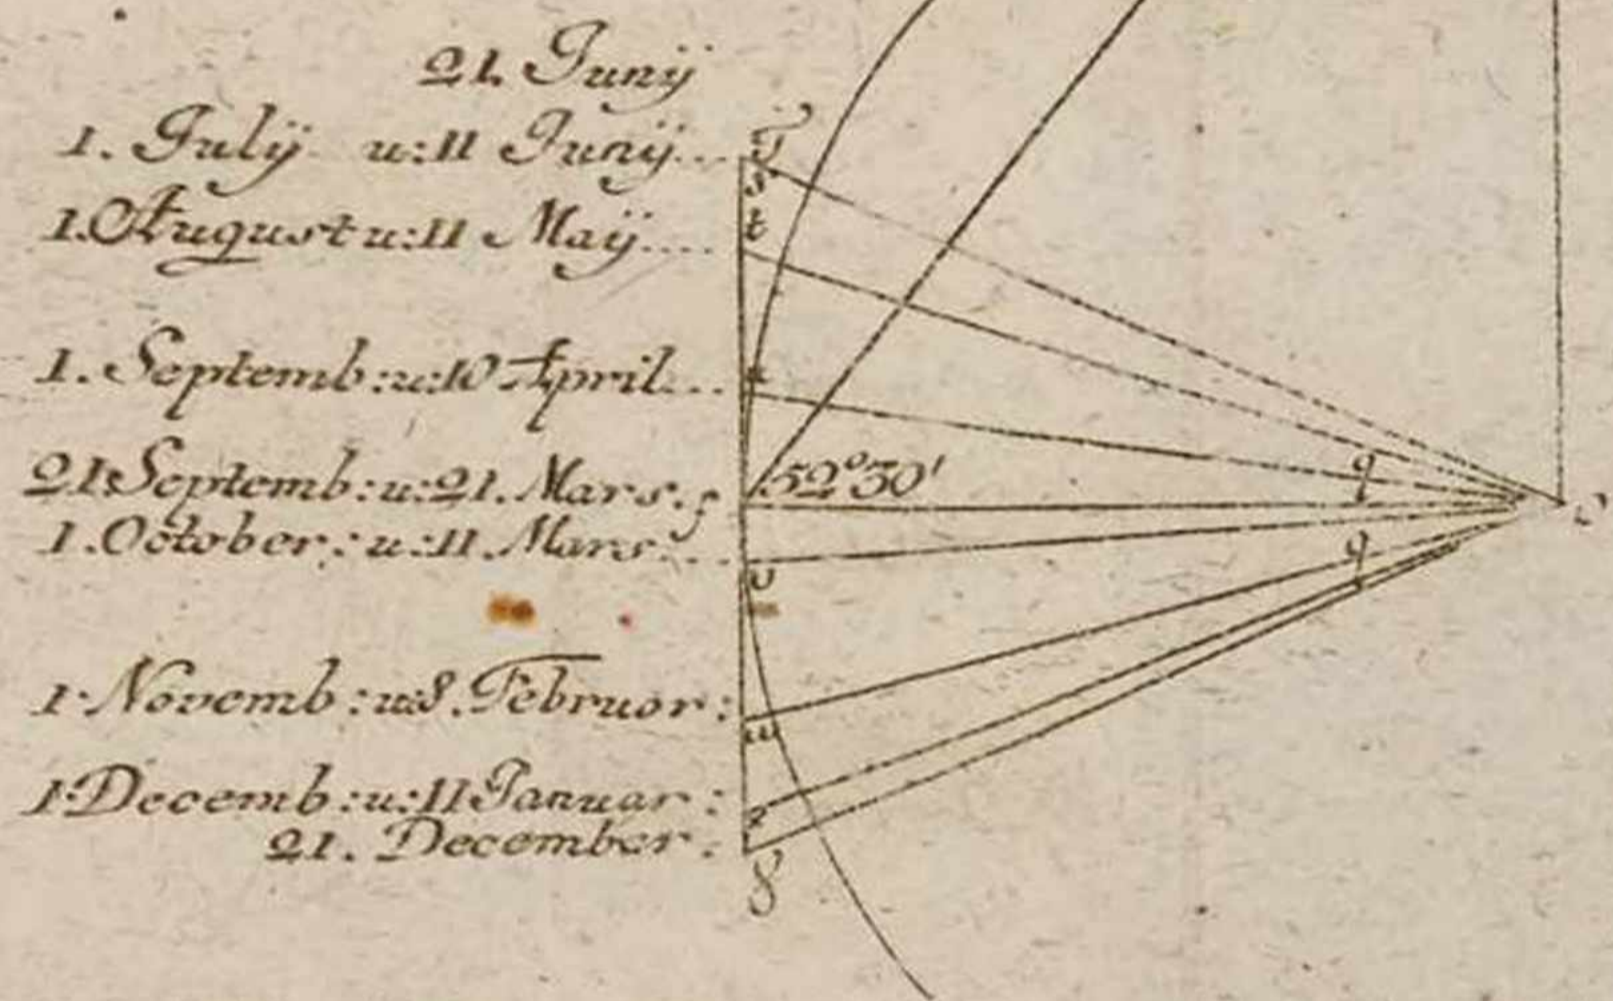 21. Junÿ
1. Julÿ u: 11 Junÿ...
T
s
1. August u: 11 Maÿ....
t
1. Septemb: u: 10 April...
u
q
21. Septemb: u: 21. Mars. f
52°30'
c
1. October: u: 11. Mars...
v
q
1. Novemb: u: 8. Februar:
w
1. Decemb: u: 11 Januar:
z
21. December.